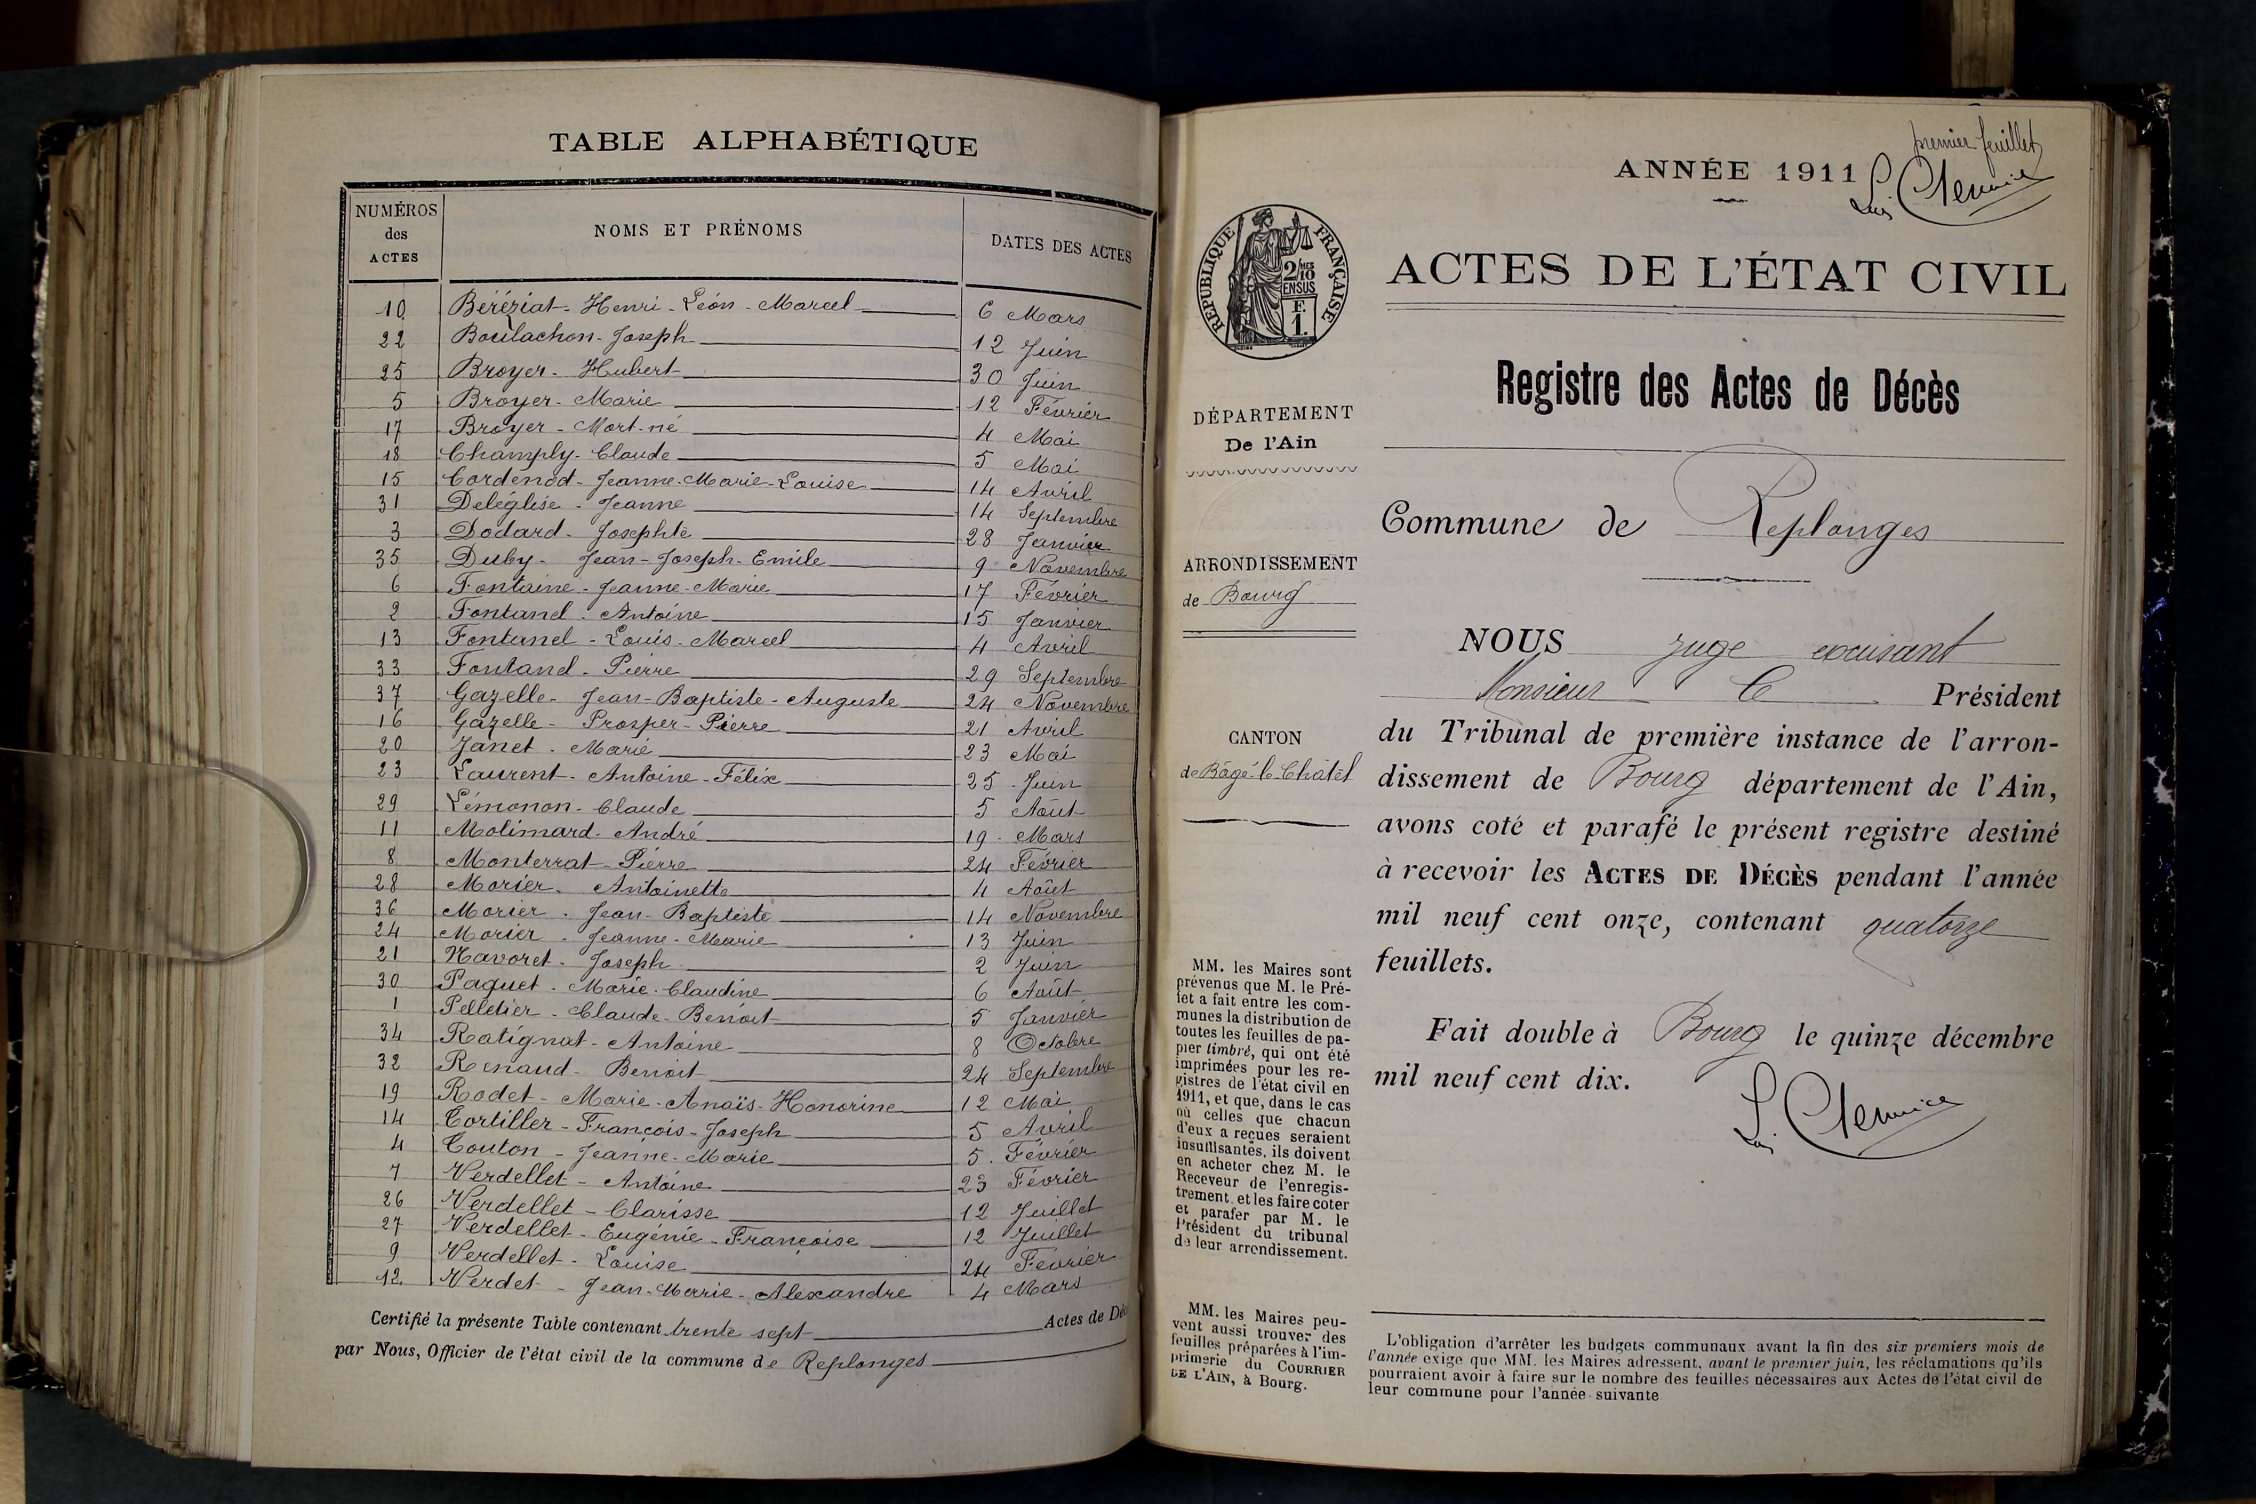 TABLE ALPHABÉTIQUE
NUMÉROS des ACTES | NOMS ET PRÉNOMS | DATES DES ACTES
10 Béréziat - Henri - Léon - Marcel 6 Mars
22 Boulachon - Joseph 12 Juin
25 Broyer - Hubert 30 Juin
5 Broyer - Marie 12 Février
17 Broyer - Mort-né 4 Mai
18 Champly - Claude 5 Mai
15 Cordenod - Jeanne - Marie - Louise 14 Avril
31 Deléglise - Jeanne 14 Septembre
3 Dodard - Josephte 28 Janvier
35 Duby - Jean - Joseph - Emile 9 Novembre
6 Fontaine - Jeanne - Marie 17 Février
2 Fontanel - Antoine 15 Janvier
13 Fontanel - Louis - Marcel 4 Avril
33 Fontanel - Pierre 29 Septembre
37 Gazelle - Jean - Baptiste - Auguste 24 Novembre
16 Gazelle - Prosper - Pierre 21 Avril
20 Janet - Marie 23 Mai
23 Laurent - Antoine - Félix 25 Juin
29 Lémonon - Claude 5 Août
11 Molimard - André 19 Mars
8 Monterrat - Pierre 24 Février
28 Morier - Antoinette 4 Août
36 Morier - Jean - Baptiste 14 Novembre
24 Morier - Jeanne - Marie 13 Juin
21 Navoret - Joseph 2 Juin
30 Paquet - Marie - Claudine 6 Août
1 Pelletier - Claude - Benoit 5 Janvier
34 Ratignat - Antoine 8 Octobre
32 Renaud - Benoit 24 Septembre
19 Rodet - Marie - Anaïs - Honorine 12 Mai
14 Tortiller - François - Joseph 5 Avril
4 Touton - Jeanne - Marie 5 Février
7 Verdellet - Antoine 23 Février
26 Verdellet - Clarisse 12 Juillet
27 Verdellet - Eugénie - Françoise 12 Juillet
9 Verdellet - Louise 24 Février
12 Verdet - Jean - Marie - Alexandre 4 Mars
Certifié la présente Table contenant trente sept Actes de Déc
par Nous, Officier de l'état civil de la commune de Replonges
premier feuillet
ANNÉE 1911
RÉPUBLIQUE FRANÇAISE
2/10 MES
EN SUS
F.
1.
ACTES DE L'ÉTAT CIVIL
Registre des Actes de Décès
DÉPARTEMENT
De l'Ain
Commune de Replonges
ARRONDISSEMENT
de Bourg
NOUS juge excusant
Monsieur le Président
CANTON
de Bâgé-le-Châtel
du Tribunal de première instance de l'arron-
dissement de Bourg département de l'Ain,
avons coté et parafé le présent registre destiné
à recevoir les ACTES DE DÉCÈS pendant l'année
mil neuf cent onze, contenant quatorze
feuillets.
Fait double à Bourg le quinze décembre
mil neuf cent dix.
MM. les Maires sont
prévenus que M. le Pré-
fet a fait entre les com-
munes la distribution de
toutes les feuilles de pa-
pier timbré, qui ont été
imprimées pour les re-
gistres de l'état civil en
1911, et que, dans le cas
où celles que chacun
d'eux a reçues seraient
insuffisantes, ils doivent
en acheter chez M. le
Receveur de l'enregis-
trement et les faire coter
et parafer par M. le
Président du tribunal
de leur arrondissement.
MM. les Maires peu-
vent aussi trouver des
feuilles préparées à l'im-
primerie du COURRIER
DE L'AIN, à Bourg.
L'obligation d'arrêter les budgets communaux avant la fin des six premiers mois de
l'année exige que MM. les Maires adressent, avant le premier juin, les réclamations qu'ils
pourraient avoir à faire sur le nombre des feuilles nécessaires aux Actes de l'état civil de
leur commune pour l'année suivante